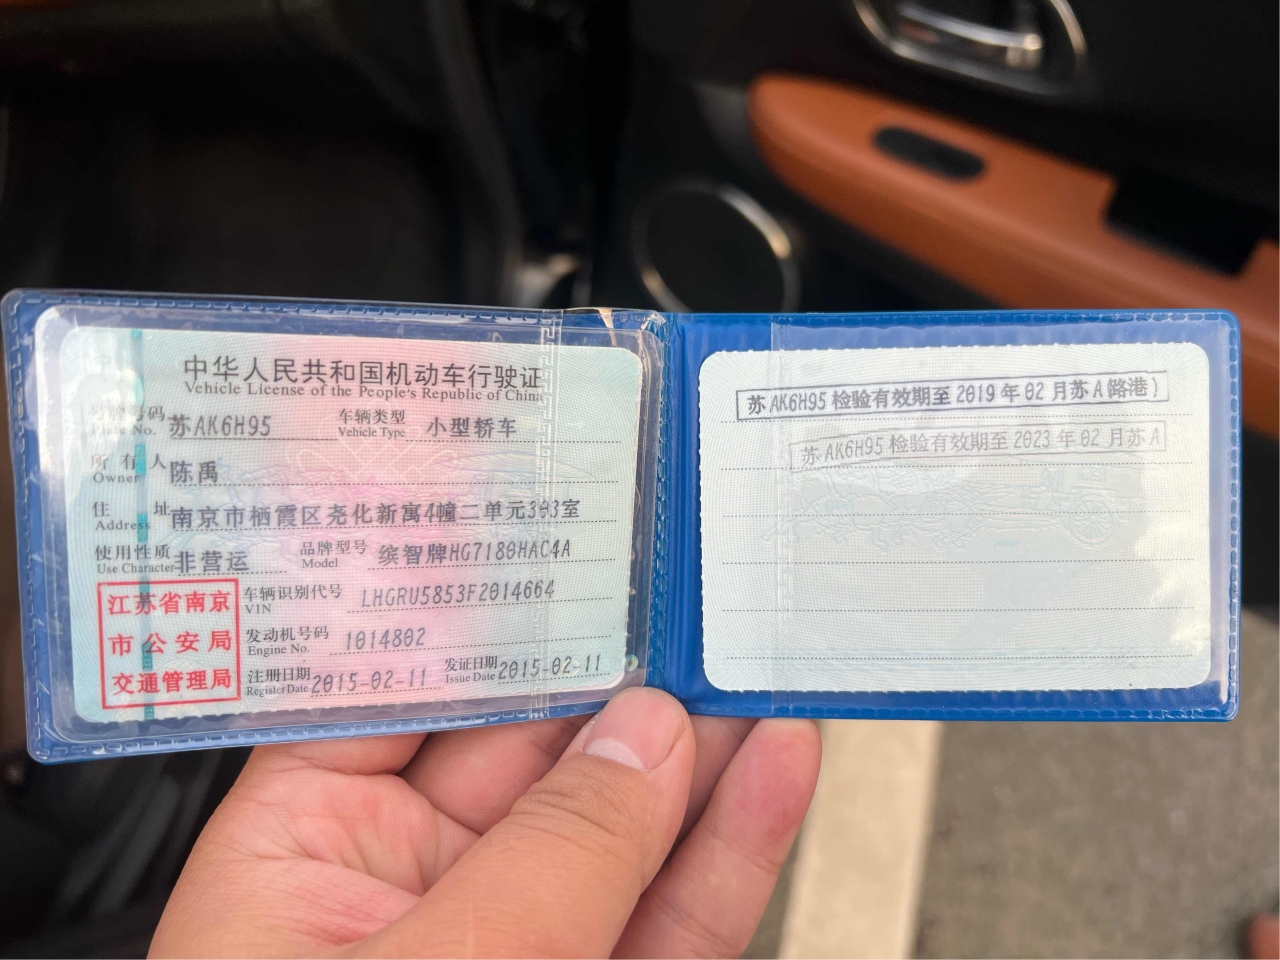 中华人民共和国机动车行驶证
Vehicle License of the People's Republic of China
号牌号码 苏AK6H95 车辆类型 小型轿车
Plate No. Vehicle Type
所有人 陈禹
Owner
住址 南京市栖霞区尧化新寓4幢二单元303室
Address
使用性质 非营运 品牌型号 缤智牌HG7180HAC4A
Use Character Model
江苏省南京
市公安局
交通管理局
车辆识别代号 LHGRU5853F2014664
VIN
发动机号码 1014802
Engine No.
注册日期 2015-02-11 发证日期 2015-02-11
Register Date Issue Date
苏AK6H95检验有效期至2019年02月苏A(路港)
苏AK6H95检验有效期至2023年02月苏A